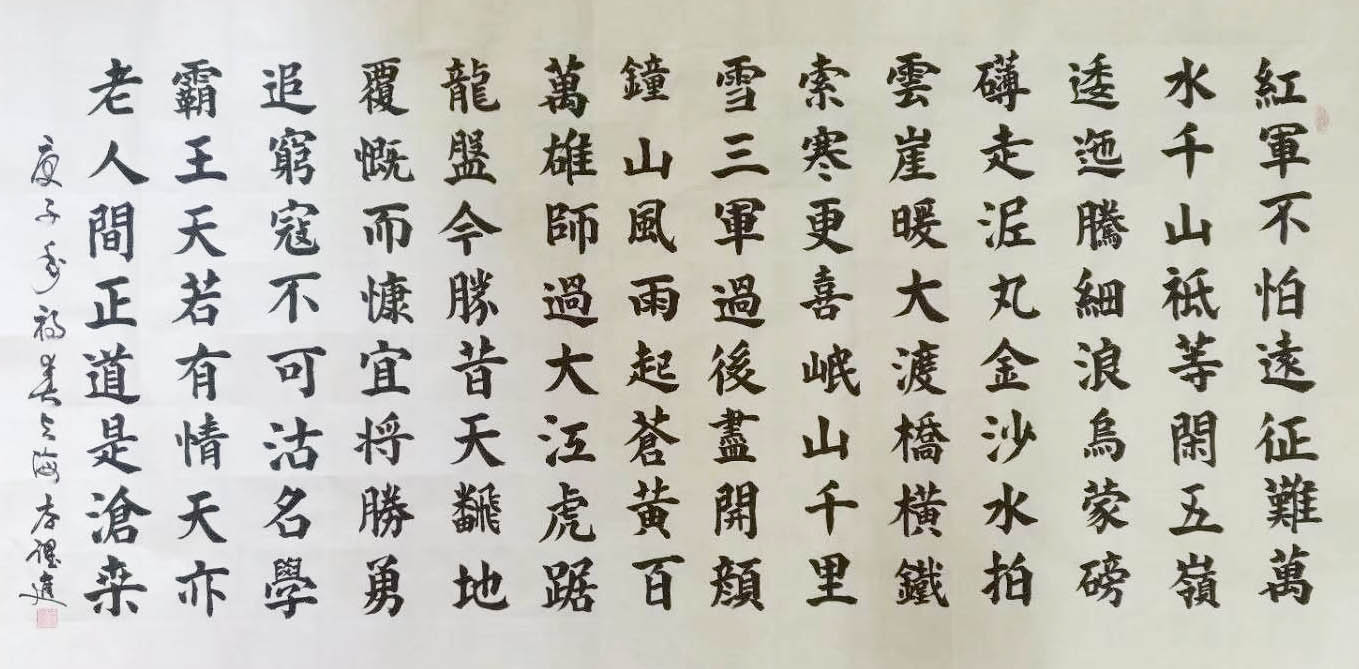 紅軍不怕遠征難萬
水千山祗等閑五嶺
逶迤騰細浪烏蒙磅
礡走泥丸金沙水拍
雲崖暖大渡橋橫鐵
索寒更喜岷山千里
雪三軍過後盡開顏
鐘山風雨起蒼黃百
萬雄師過大江虎踞
龍盤今勝昔天飜地
覆慨而慷宜将勝勇
追窮寇不可沽名學
霸王天若有情天亦
老人間正道是滄桒
庚子